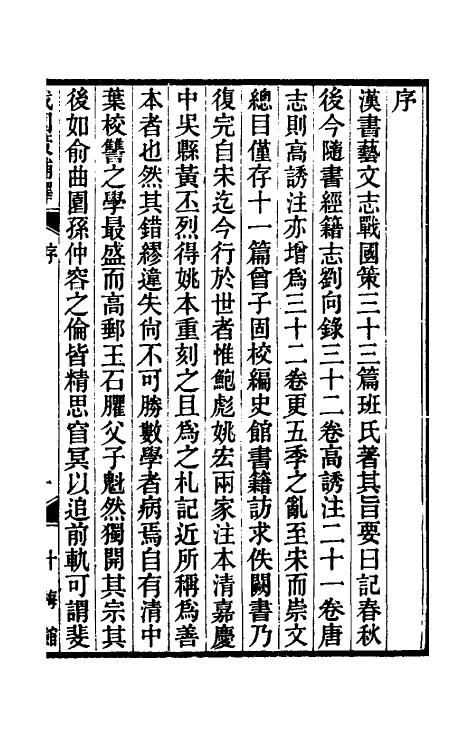 序
漢書藝文志戰國策三十三篇班氏著其旨要曰記春秋
後今隨書經籍志劉向錄三十二卷高誘注二十一卷唐
志則高誘注亦增爲三十二卷更五季之亂至宋而崇文
總目僅存十一篇曾子固校編史館書籍訪求佚闕書乃
復完自宋迄今行於世者惟鮑彪姚宏兩家注本清嘉慶
中吳縣黃丕烈得姚本重刻之且爲之札記近所稱爲善
本者也然其錯繆違失尙不可勝數學者病焉自有清中
葉校讐之學最盛而高郵王石臞父子魁然獨開其宗其
後如俞曲園孫仲容之倫皆精思窅冥以追前軌可謂斐
序
一